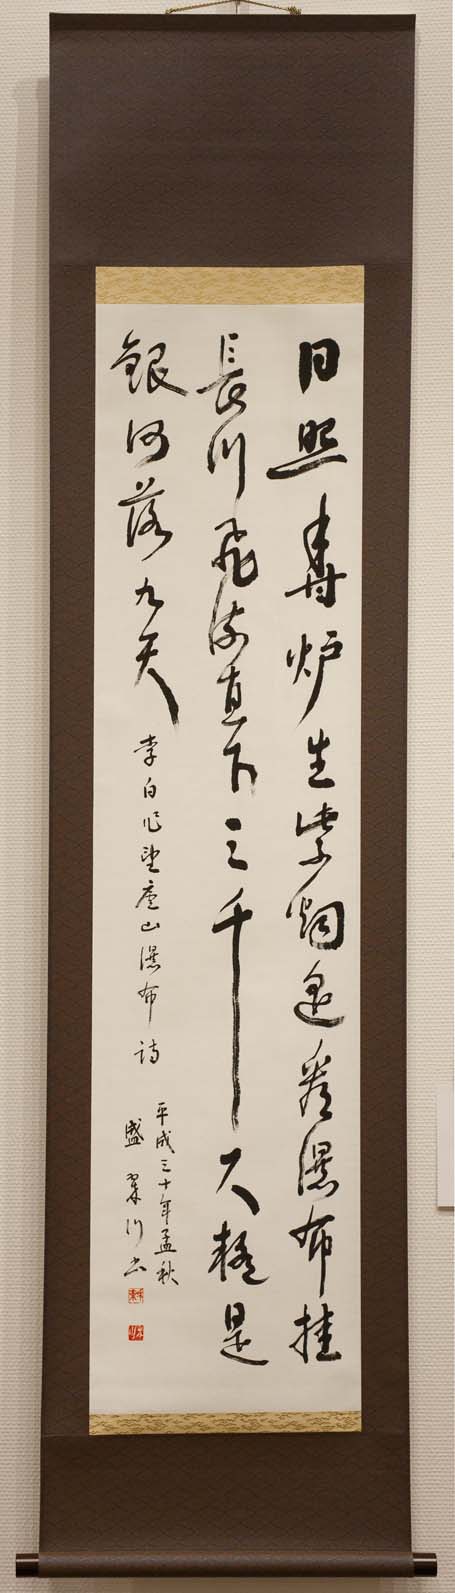 日照香炉生紫烟遥看瀑布挂
長川飛流直下三千尺疑是
銀河落九天
李白作望廬山瀑布詩
平成三十年孟秋
盛川書